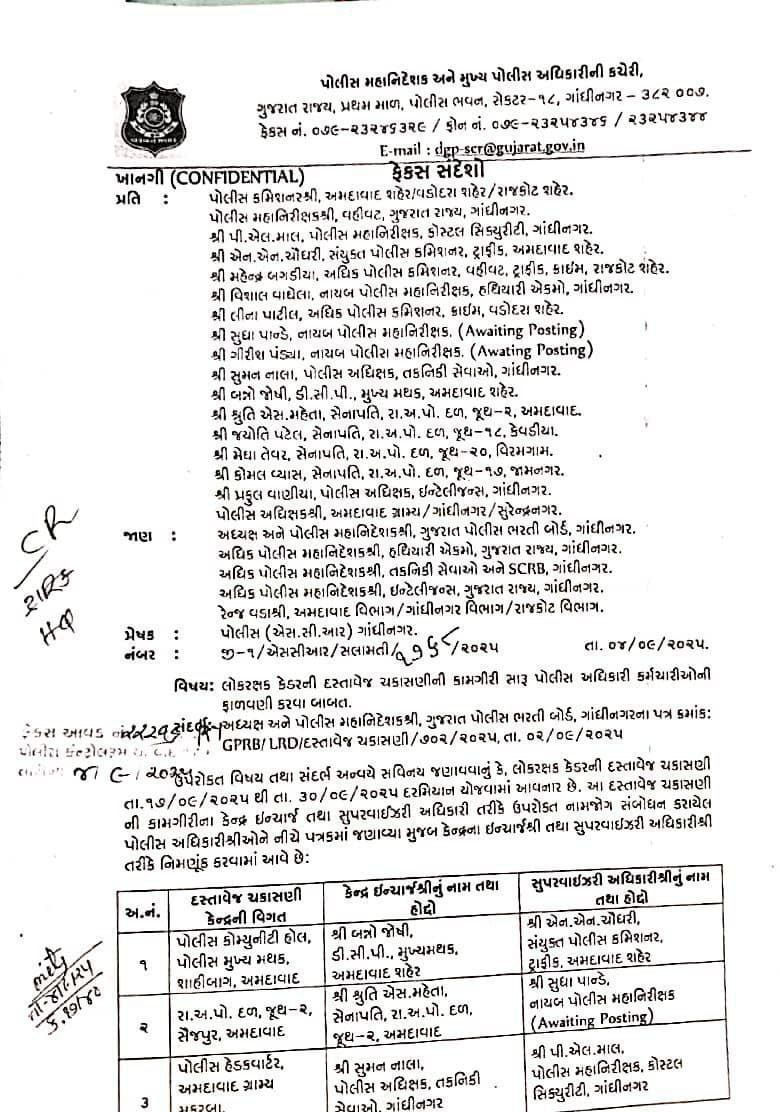 પોલીસ મહાનિદેશક અને મુખ્ય પોલીસ અધિકારીની કચેરી,
ગુજરાત રાજ્ય, પ્રથમ માળ, પોલીસ ભવન, સેકટર-૧૮, ગાંધીનગર – ૩૮૨ ૦૦૭.
ફેક્સ નં. ૦૭૯-૨૩૨૪૬૩૨૯ / ફોન નં. ૦૭૯-૨૩૨૫૪૩૪૬ / ૨૩૨૫૪૩૪૪
E-mail : dgp-scr@gujarat.gov.in
ખાનગી (CONFIDENTIAL) ફેકસ સંદેશો
પ્રતિ : પોલીસ કમિશનરશ્રી, અમદાવાદ શહેર/વડોદરા શહેર/રાજકોટ શહેર.
પોલીસ મહાનિરીક્ષકશ્રી, વહીવટ, ગુજરાત રાજ્ય, ગાંધીનગર.
શ્રી પી.એલ.માલ, પોલીસ મહાનિરીક્ષક, કોસ્ટલ સિક્યુરીટી, ગાંધીનગર.
શ્રી એન.એન.ચૌધરી, સંયુક્ત પોલીસ કમિશનર, ટ્રાફીક, અમદાવાદ શહેર.
શ્રી મહેન્દ્ર બગડીયા, અધિક પોલીસ કમિશનર, વહીવટ, ટ્રાફીક, ક્રાઈમ, રાજકોટ શહેર.
શ્રી વિશાલ વાઘેલા, નાયબ પોલીસ મહાનિરીક્ષક, હથિયારી એકમો, ગાંધીનગર.
શ્રી લીના પાટીલ, અધિક પોલીસ કમિશનર, ક્રાઈમ, વડોદરા શહેર.
શ્રી સુધા પાન્ડે, નાયબ પોલીસ મહાનિરીક્ષક. (Awaiting Posting)
શ્રી ગીરીશ પંડ્યા, નાયબ પોલીસ મહાનિરીક્ષક. (Awating Posting)
શ્રી સુમન નાલા, પોલીસ અધિક્ષક, તકનિકી સેવાઓ, ગાંધીનગર.
શ્રી બન્નો જોષી, ડી.સી.પી., મુખ્ય મથક, અમદાવાદ શહેર.
શ્રી શ્રુતિ એસ.મહેતા, સેનાપતિ, રા.અ.પો. દળ, જૂથ-૨, અમદાવાદ.
શ્રી જયોતિ પટેલ, સેનાપતિ, રા.અ.પો. દળ, જૂથ-૧૮, કેવડીયા.
શ્રી મેઘા તેવર, સેનાપતિ, રા.અ.પો. દળ, જૂથ-૨૦, વિરમગામ.
શ્રી કોમલ વ્યાસ, સેનાપતિ, રા.અ.પો. દળ, જૂથ-૧૭, જામનગર.
શ્રી પ્રફુલ વાણીયા, પોલીસ અધિક્ષક, ઈન્ટેલીજન્સ, ગાંધીનગર.
પોલીસ અધિક્ષકશ્રી, અમદાવાદ ગ્રામ્ય/ગાંધીનગર/સુરેન્દ્રનગર.
જાણ : અધ્યક્ષ અને પોલીસ મહાનિદેશકશ્રી, ગુજરાત પોલીસ ભરતી બોર્ડ, ગાંધીનગર.
અધિક પોલીસ મહાનિદેશકશ્રી, હથિયારી એકમો, ગુજરાત રાજ્ય, ગાંધીનગર.
અધિક પોલીસ મહાનિદેશકશ્રી, તકનિકી સેવાઓ અને SCRB, ગાંધીનગર.
અધિક પોલીસ મહાનિદેશકશ્રી, ઈન્ટેલીજન્સ, ગુજરાત રાજ્ય, ગાંધીનગર.
રેન્જ વડાશ્રી, અમદાવાદ વિભાગ/ગાંધીનગર વિભાગ/રાજકોટ વિભાગ.
CR
શાખ
HQ
પ્રેષક : પોલીસ (એસ.સી.આર) ગાંધીનગર.
નંબર : જી-૧/એસસીઆર/સલામતી/ /૨૦૨૫ તા. ૦૪/૦૯/૨૦૨૫.
વિષય: લોકરક્ષક કેડરની દસ્તાવેજ ચકાસણીની કામગીરી સારૂ પોલીસ અધિકારી કર્મચારીઓની
ફાળવણી કરવા બાબત.
ફેકસ આવક નં સંદર્ભ: અધ્યક્ષ અને પોલીસ મહાનિદેશકશ્રી, ગુજરાત પોલીસ ભરતી બોર્ડ, ગાંધીનગરના પત્ર ક્રમાંક:
પોલીસ કંન્ટ્રોલરૂમ GPRB/ LRD/દસ્તાવેજ ચકાસણી/૭૦૨/૨૦૨૫, તા. ૦૨/૦૯/૨૦૨૫
ઉપરોક્ત વિષય તથા સંદર્ભ અન્વયે સવિનય જણાવવાનું કે, લોકરક્ષક કેડરની દસ્તાવેજ ચકાસણી
તા.૧૭/૦૯/૨૦૨૫ થી તા. ૩૦/૦૯/૨૦૨૫ દરમિયાન યોજવામાં આવનાર છે. આ દસ્તાવેજ ચકાસણી
ની કામગીરીના કેન્દ્ર ઈન્ચાર્જ તથા સુપરવાઈઝરી અધિકારી તરીકે ઉપરોક્ત નામજોગ સંબોધન કરાયેલ
પોલીસ અધિકારીશ્રીઓને નીચે પત્રકમાં જણાવ્યા મુજબ કેન્દ્રના ઈન્ચાર્જશ્રી તથા સુપરવાઈઝરી અધિકારીશ્રી
તરીકે નિમણૂંક કરવામાં આવે છે:
અ.નં.
દસ્તાવેજ ચકાસણી
કેન્દ્રની વિગત
કેન્દ્ર ઈન્ચાર્જશ્રીનું નામ તથા
હોદ્દો
સુપરવાઈઝરી અધિકારીશ્રીનું નામ
તથા હોદ્દો
૧
પોલીસ કોમ્યુનીટી હોલ,
પોલીસ મુખ્ય મથક,
શાહીબાગ, અમદાવાદ
શ્રી બન્નો જોષી,
ડી.સી.પી., મુખ્યમથક,
અમદાવાદ શહેર
શ્રી એન.એન.ચૌધરી,
સંયુકત પોલીસ કમિશનર,
ટ્રાફીક, અમદાવાદ શહેર
૨
રા.અ.પો. દળ, જૂથ-૨,
સૈજપુર, અમદાવાદ
શ્રી શ્રુતિ એસ.મહેતા,
સેનાપતિ, રા.અ.પો. દળ,
જૂથ-૨, અમદાવાદ
શ્રી સુધા પાન્ડે,
નાયબ પોલીસ મહાનિરીક્ષક
(Awaiting Posting)
3
પોલીસ હેડકવાર્ટર,
અમદાવાદ ગ્રામ્ય
મકરબા,
શ્રી સુમન નાલા,
પોલીસ અધિક્ષક, તકનિકી
સેવાઓ, ગાંધીનગર
શ્રી પી.એલ.માલ,
પોલીસ મહાનિરીક્ષક, કોસ્ટલ
સિક્યુરીટી, ગાંધીનગર